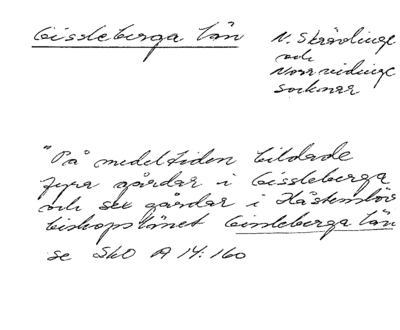 Gissleberga län
N. Skrävlinge
och
Norrvidinge
socknar
"På medeltiden bildade
fyra gårdar i Gissleberga
och sex gårdar i Hästenlöv
biskopslänet Gissleberga län
se SkO A 14:160